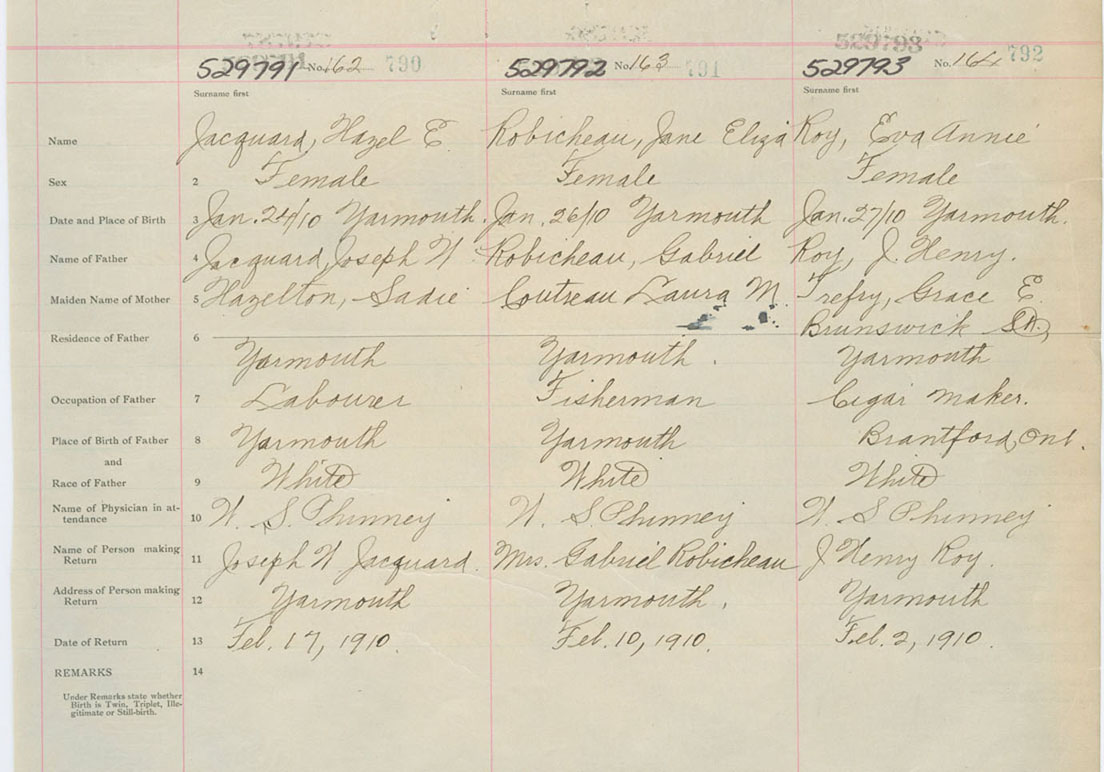 529793
529791 No. 162 790 529792 No. 163 791 529793 No. 164 792
Surname first Surname first Surname first
Name Jacquard, Hazel E. Robicheau, Jane Eliza Roy, Eva Annie
Sex 2 Female Female Female
Date and Place of Birth 3 Jan. 24/10 Yarmouth. Jan. 26/10 Yarmouth Jan. 27/10 Yarmouth.
Name of Father 4 Jacquard, Joseph W Robicheau, Gabriel Roy, J. Henry.
Maiden Name of Mother 5 Hazelton, Sadie Coutreau Laura M. Trefry, Grace E.
Brunswick St.
Residence of Father 6
Yarmouth Yarmouth. Yarmouth
Occupation of Father 7 Labourer Fisherman Cigar maker.
Place of Birth of Father 8 Yarmouth Yarmouth Brantford, Ont.
and
Race of Father 9 White White White
Name of Physician in at-
tendance 10 W. S. Phinney W. S Phinney W. S Phinney
Name of Person making
Return 11 Joseph W Jacquard. Mrs. Gabriel Robicheau J Henry Roy.
Address of Person making
Return 12 Yarmouth Yarmouth. Yarmouth
Date of Return 13 Feb. 17, 1910. Feb. 10, 1910. Feb. 2, 1910.
REMARKS 14
Under Remarks state whether
Birth is Twin, Triplet, Ille-
gitimate or Still-birth.